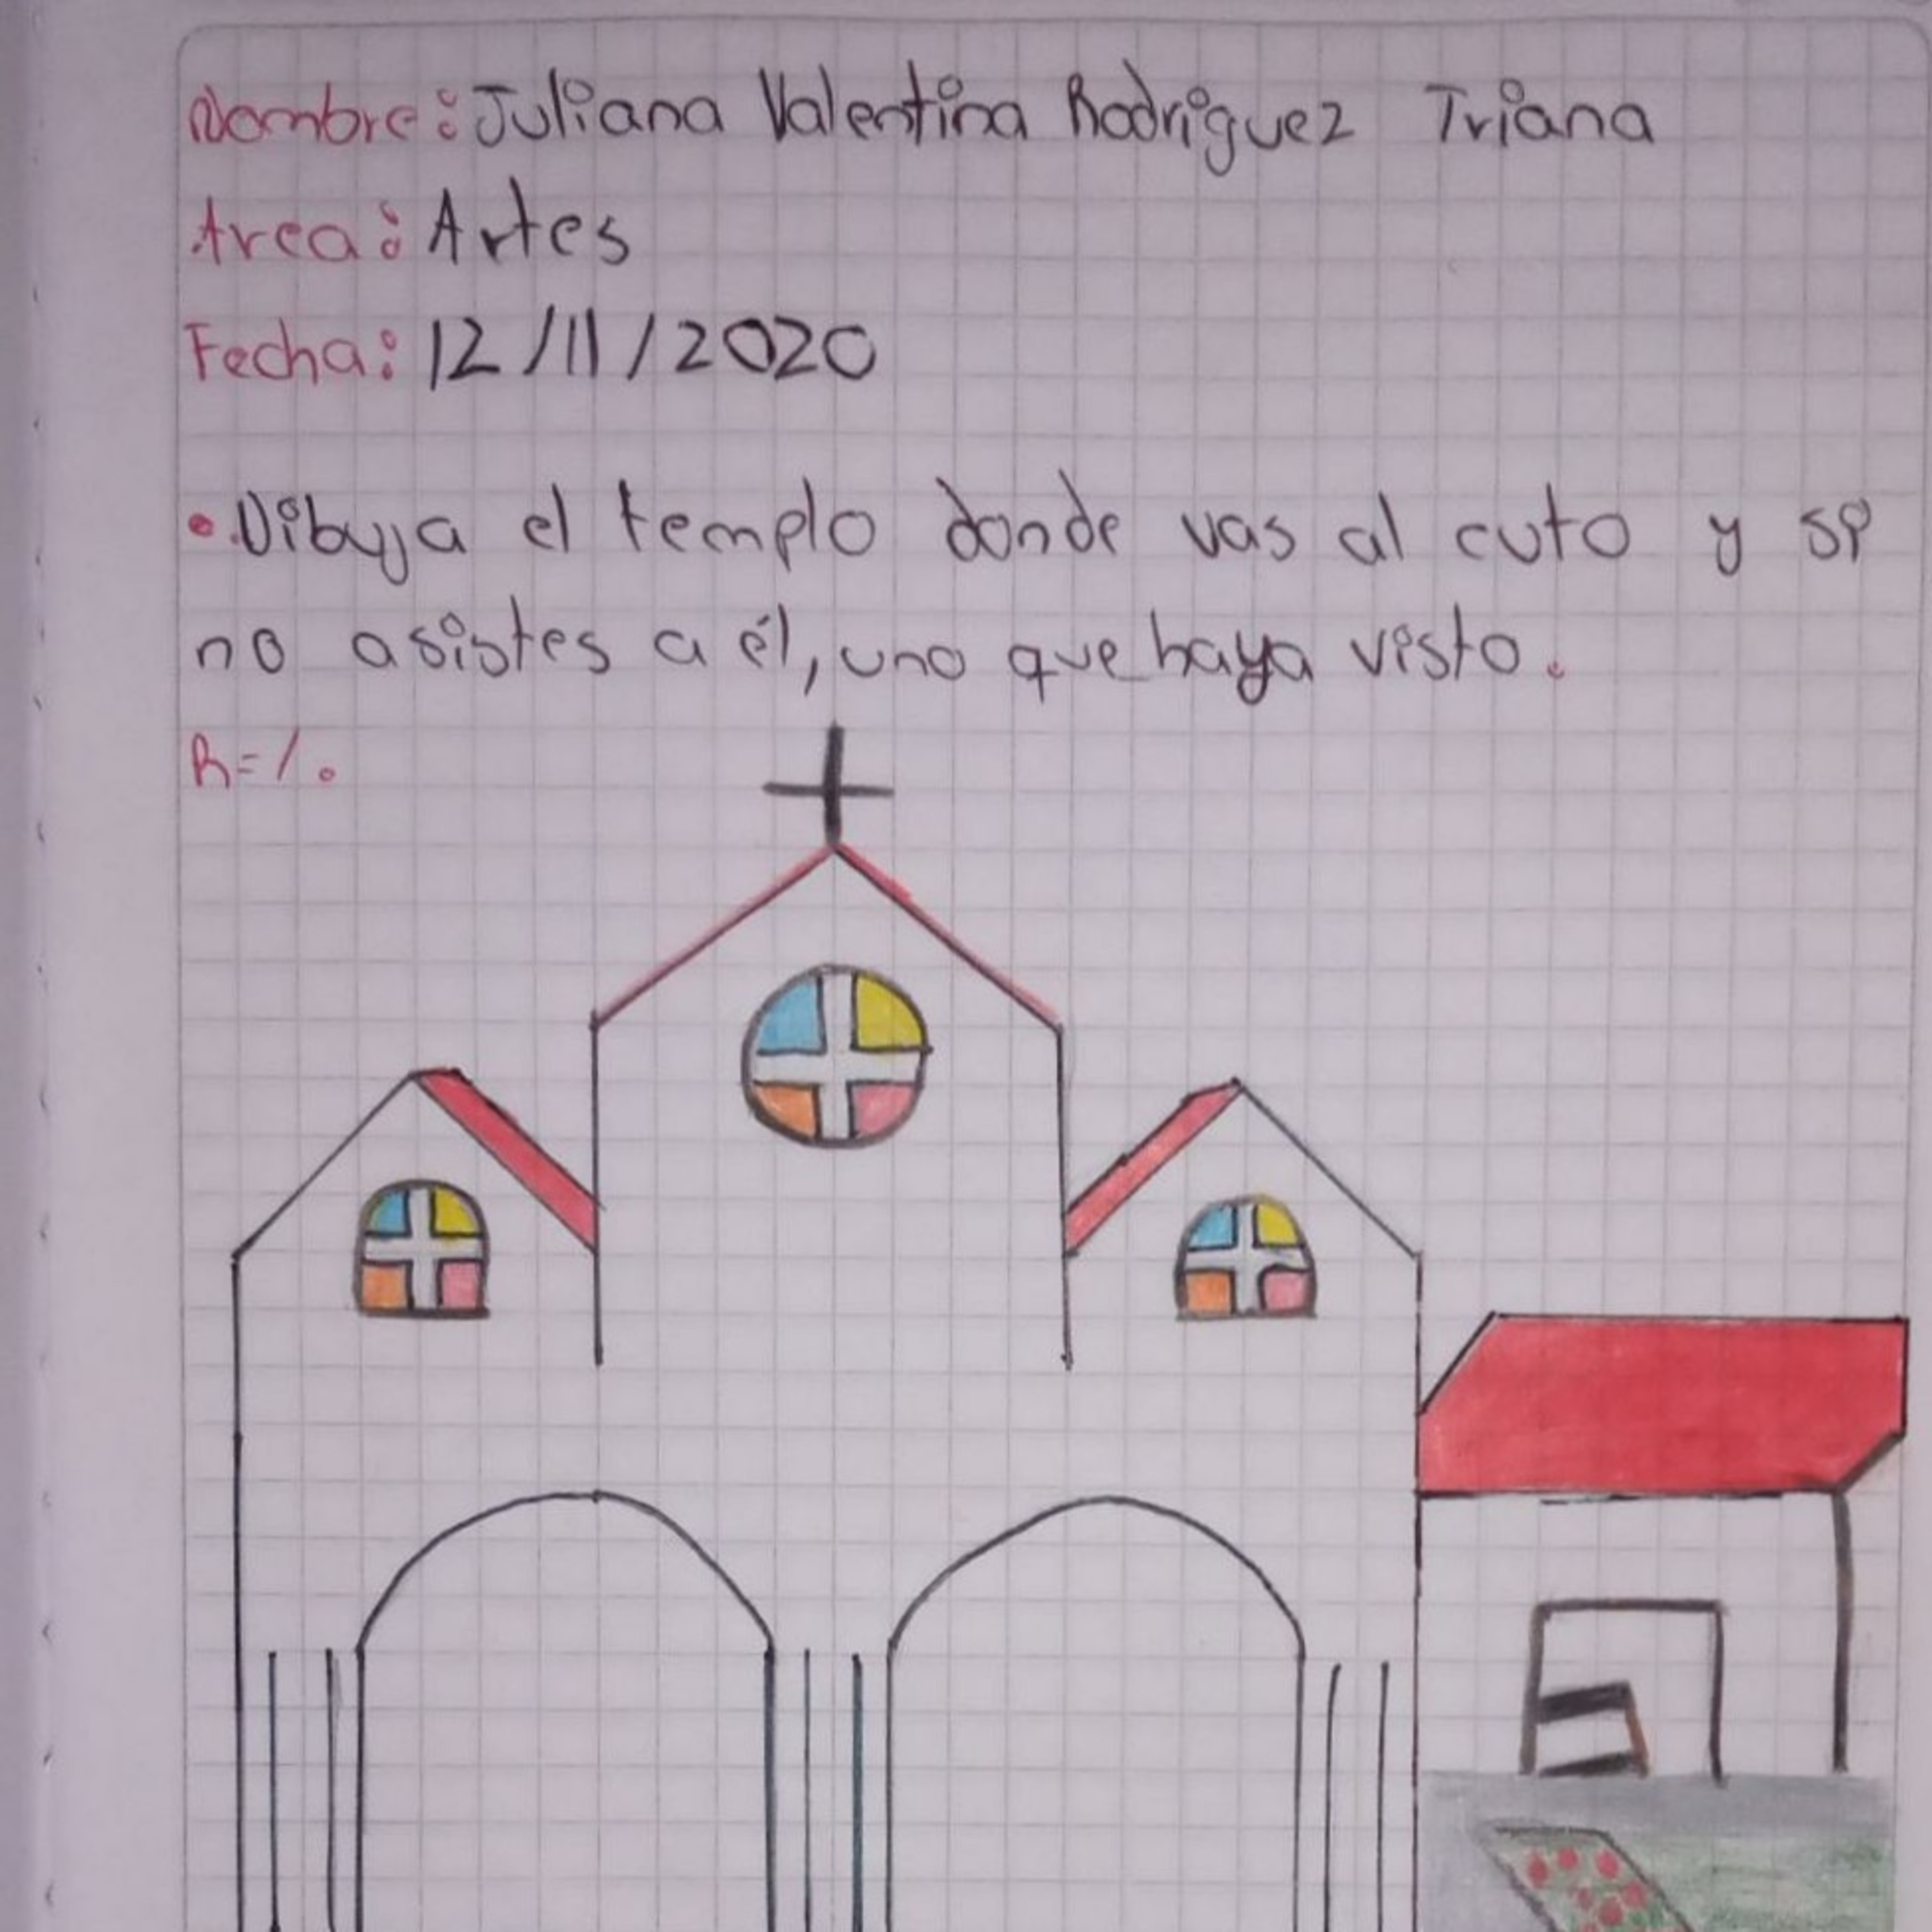 Nombre: Juliana Valentina Rodriguez Triana
Area: Artes
Fecha: 12/11/2020
• Dibuja el templo donde vas al cuto y si
no asistes a él, uno que haya visto.
R=/.